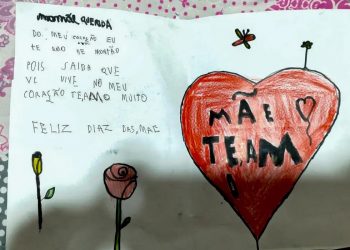 mamãe querida
DO MEU CORAÇÃO EU
TE
POIS SAIBA QUE
VC VIVE NO MEU
CORAÇÃO TEAMO MUITO
FELIZ DIAZ DAS, MAE
MÃE
TEAM